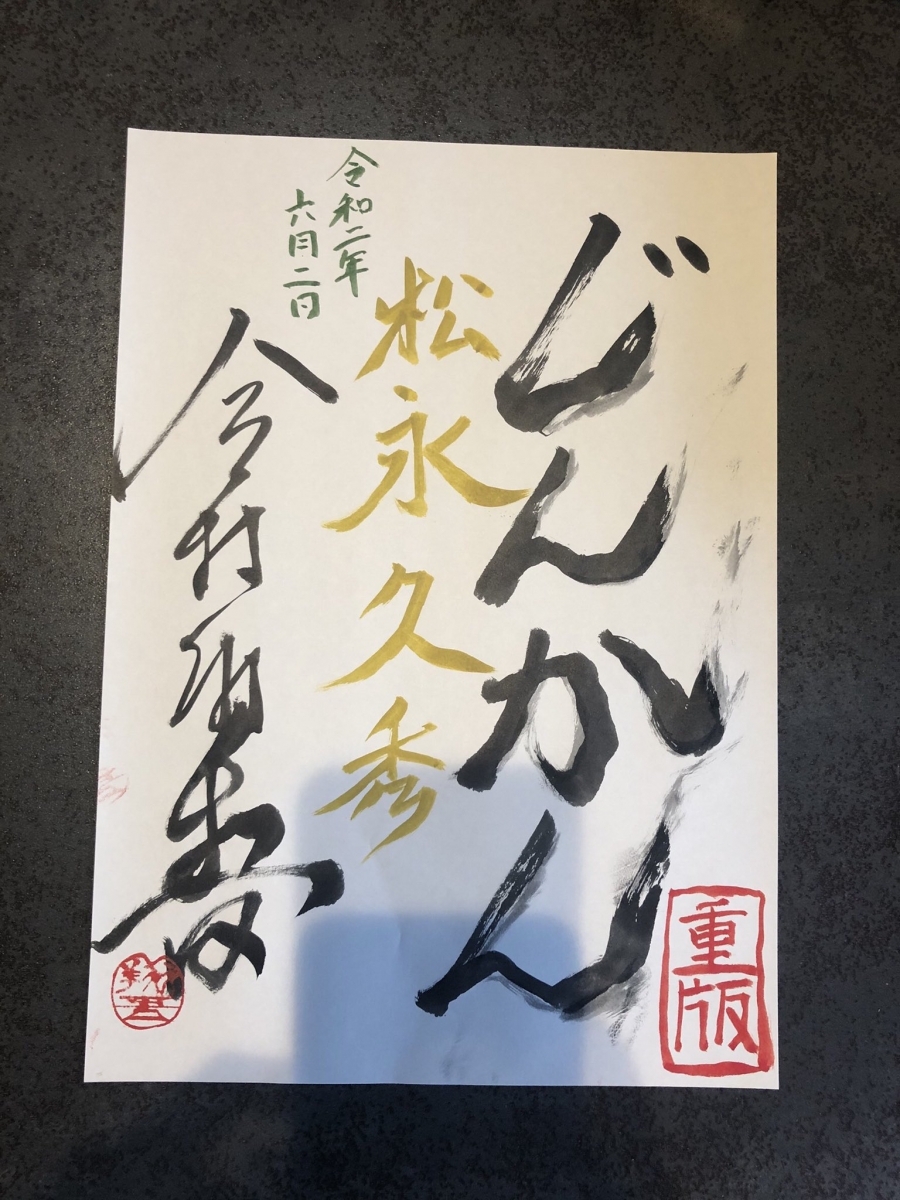 じんかん
重版
松永久秀
令和二年
六月二日
今村翔吾